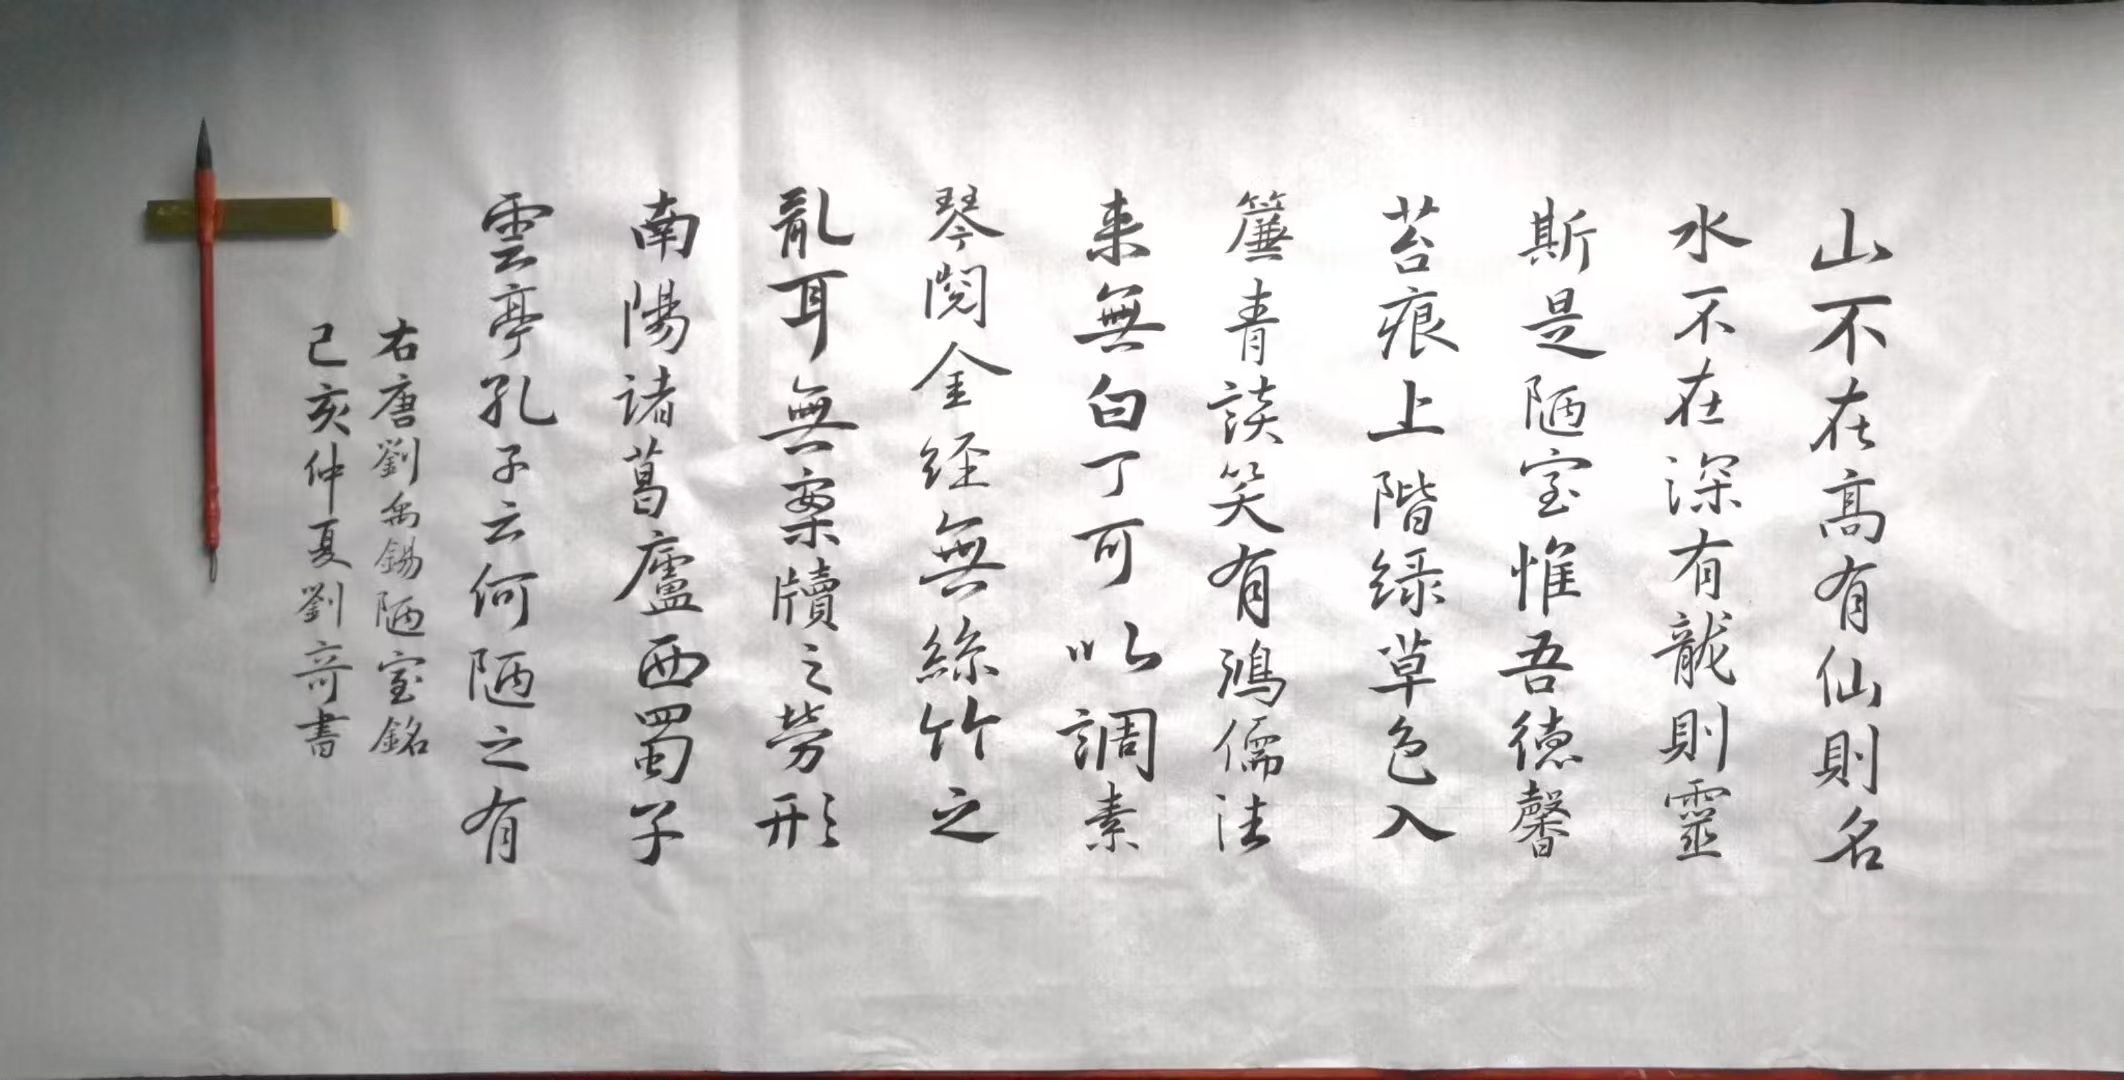 山不在高有仙則名
水不在深有龍則靈
斯是陋室惟吾德馨
苔痕上階緑草色入
簾青談笑有鴻儒往
来無白丁可以調素
琴閱金経無絲竹之
亂耳無案牘之勞形
南陽諸葛廬西蜀子
雲亭孔子云何陋之有
右唐劉禹錫陋室銘
己亥仲夏劉奇書